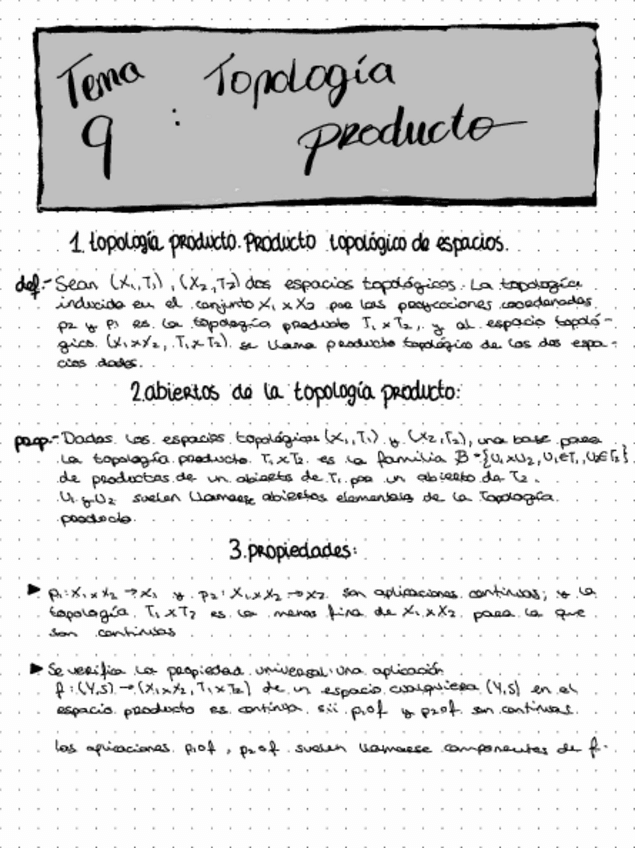 Tema 9 : Topología producto
1. topología producto. Producto topológico de espacios.
def:- Sean (X₁,T₁), (X₂,T₂) dos espacios topológicos. La topología
inducida en el conjunto X₁ x X₂ por las proyecciones coordenadas
p₂ y p₁ es la topología producto T₁ x T₂, y al espacio topoló-
gico (X₁xX₂, T₁xT₂) se llama producto topológico de los dos espa-
cios dados.
2. abiertos de la topología producto:
prop:- Dados los espacios topológicos (X₁,T₁) y (X₂,T₂), una base para
la topología producto T₁xT₂ es la familia B={U₁xU₂, U₁∈T₁, U₂∈T₂}
de productos de un abierto de T₁ por un abierto de T₂.
U₁ y U₂ suelen llamarse abiertos elementales de la topología
producto.
3. propiedades:
▶ p₁: X₁xX₂ → X₁ y p₂: X₁xX₂ → X₂ son aplicaciones continuas; y la
topología T₁xT₂ es la menos fina de X₁xX₂ para la que
son continuas
▶ Se verifica la propiedad universal: una aplicación
f: (Y,S) → (X₁xX₂, T₁xT₂) de un espacio cualquiera (Y,S) en el
espacio producto es continua sii p₁of y p₂of son continuas.
las aplicaciones p₁of, p₂of suelen llamarse componentes de f.